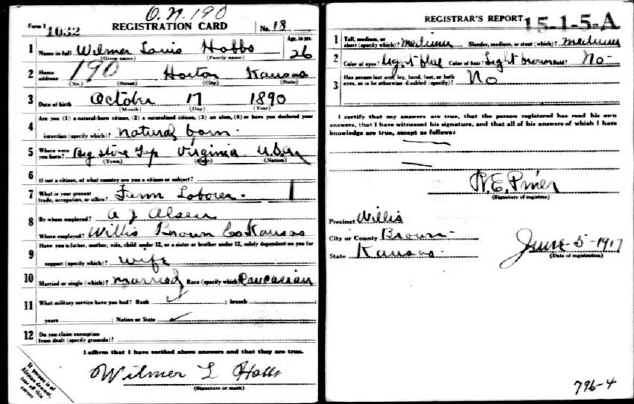 O.N. 190
Form 1 1032 REGISTRATION CARD No. 18
1 Name in full Wilmer Louis Hobbs Age, in yrs. 26
(Given name) (Family name)
2 Home address 190 Horton Kansas
(No.) (Street) (City) (State)
3 Date of birth October 17 1890
(Month) (Day) (Year)
Are you (1) a natural-born citizen, (2) a naturalized citizen, (3) an alien, (4) or have you declared your
4 intention (specify which)? natural born.
5 Where were you born? Virginia
(Town) (State) (Nation)
6 If not a citizen, of what country are you a citizen or subject?
7 What is your present trade, occupation, or office? Farm Laborer. 1
8 By whom employed? A J Olsen
Where employed? Willis Brown Co Kansas
Have you a father, mother, wife, child under 12, or a sister or brother under 12, solely dependent on you for
9 support (specify which)? wife
10 Married or single (which)? married Race (specify which)? Caucasian
11 What military service have you had? Rank ; branch
years ; Nation or State
12 Do you claim exemption from draft (specify grounds)?
I affirm that I have verified above answers and that they are true.
Wilmer L Hobbs
(Signature or mark)
REGISTRAR'S REPORT 15-1-5-A
1 Tall, medium, or short (specify which)? medium Slender, medium, or stout (which)? medium
2 Color of eyes? Light blue Color of hair? Light brown Bald? No
3 Has person lost arm, leg, hand, foot, or both eyes, or is he otherwise disabled (specify)? No
I certify that my answers are true, that the person registered has read his own
answers, that I have witnessed his signature, and that all of his answers of which I
have knowledge are true, except as follows:
(Signature of registrar)
Precinct Willis
City or County Brown
State Kansas
June 5-1917
(Date of registration)
796-4